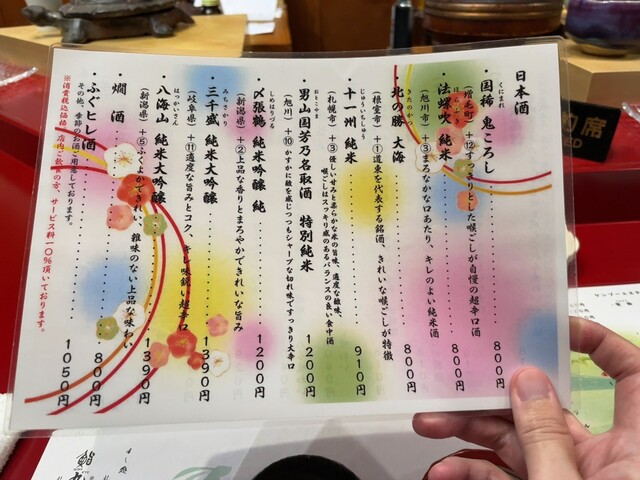 日本酒
くにまれ
・国稀 鬼ころし
800円
(増毛町) +⑫すっきりとした喉ごしが自慢の超辛口酒
ほらふき
・法螺吹 純米
800円
(旭川市) +③まろやかな口あたり、キレのよい純米酒
きたのかつ
・北の勝 大海
800円
(根室市) +①道東を代表する銘酒、きれいな喉ごしが特徴
じゅういっしゅう
・十一州 純米
910円
(札幌市) +③優しい甘みと柔らかな米の旨味、適度な酸味、
喉ごしはスッキリ感のあるバランスの良い食中酒
おとこやま
・男山 国芳乃名取酒 特別純米
1200円
(旭川) +⑩かすかに酸を感じつつもシャープな切れ味ですっきり大辛口
しめはりつる
・〆張鶴 純米吟醸 純
1200円
(新潟県) +②上品な香りとまろやかできれいな旨み
みちさかり
・三千盛 純米大吟醸
1390円
(岐阜県) +⑪適度な旨みとコク、キレ味鋭い超辛口
はっかいさん
・八海山 純米大吟醸
1390円
(新潟県) +⑤ふくよかできれい、雑味のない上品な味わい
・燗 酒
800円
・ふぐヒレ酒
1050円
その他、季節のお酒ご用意しております。
※消費税込価格 店内ご飲食の方、サービス料一〇%頂いております。
席
ED
すし処
鮨